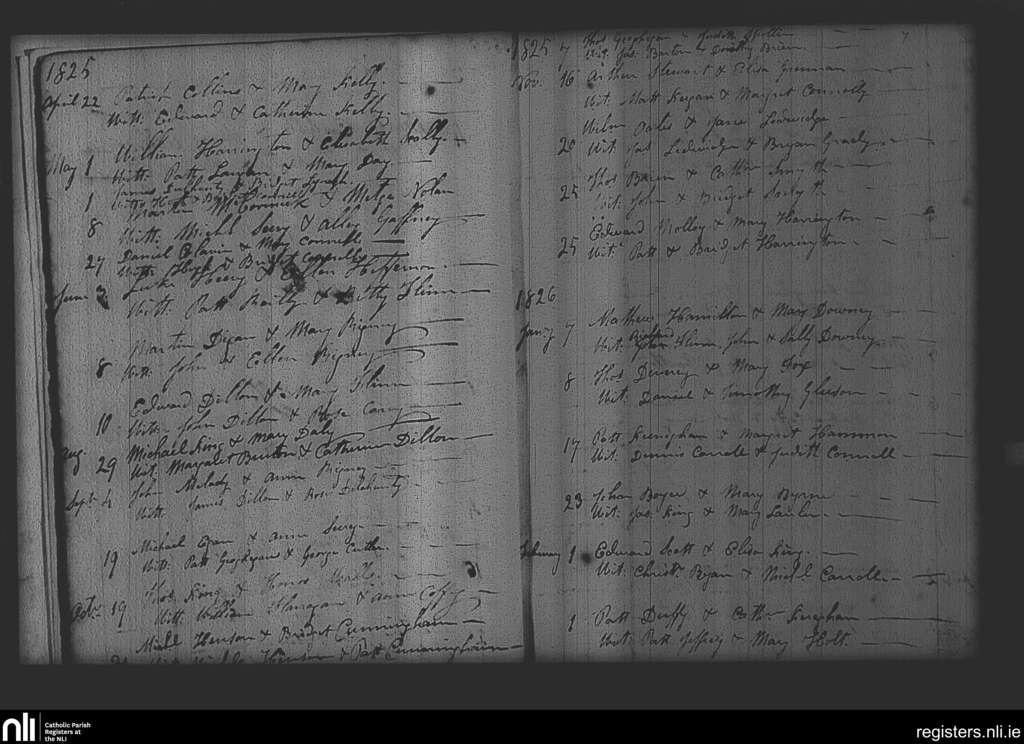 1825
April 22 Patrick Collins & Mary Kelly
Witt: Edward & Catherine Kelly
May 1 William Harrington & Elizabeth Nolly
Witt: Patty Lawler & Mary Day
1 James & Bridget
Witt:
8 Martin McCormick & Nolan
Witt: Michl Seery & Alley Gaffney
27 Daniel & Mary Connell
Witt: Hugh & Bridget Connelly
June 3 Luke & Ellen Heffernon
Witt: Patt Reilly & Kitty Flinn
8 Martin Digan & Mary Rigney
Witt: John & Ellen Rigney
10 Edward Dillon & Mary Flinn
Witt: John Dillon & Rose Carry
Aug. 29 Michael King & Mary Daly
Wit. Margaret Burton & Catherine Dillon
Sept. 4 John Melady & Anne Rigney
Witt: James Dillon & Rose Delahunty
19 Michael Egan & Anne Seery
Witt: Patt Geoghegan & George Cutler
Octr. 19 Thos King & Honor
Witt: William Flanagan & Ann Coffy
Michl Henson & Bridget Cunningham
Henson & Patt Cunningham
1825 7 Thos Geoghegan & Judith
Wit. Jas. Burton & Dorothy Brien
Nov. 16 Arthur Stewart & Eliza Grennan
Wit. Matt Keegan & Margret Connelly
20 Wilm Oates & Jane Ledwidge
Wit. Jas Ledwidge & Bryan Grady
25 Thos Brien & Cathn Smyth
Wit. John & Bridget Smyth
25 Edward Molloy & Mary Harrington
Wit. Patt & Bridget Harrington
1826
Janry 7 Mathew Hamilton & Mary Downey
Wit. Richard Flinn John & Sally Downey
8 Thos Deverey & Mary Fox
Wit. Daniel & Timothy Gleeson
17 Patt & Margret Hammon
Wit. Dennis Carroll & Judith Connell
23 John Boyce & Mary Byrne
Wit. Jas. King & Mary Lawler
February 1 Edward Scott & Eliza King
Wit. Christr. Ryan & Michl Carroll
1 Patt Duffy & Cathn
Wit. Patt & Mary Holt.
nli
Catholic Parish
Registers at
the NLI
registers.nli.ie